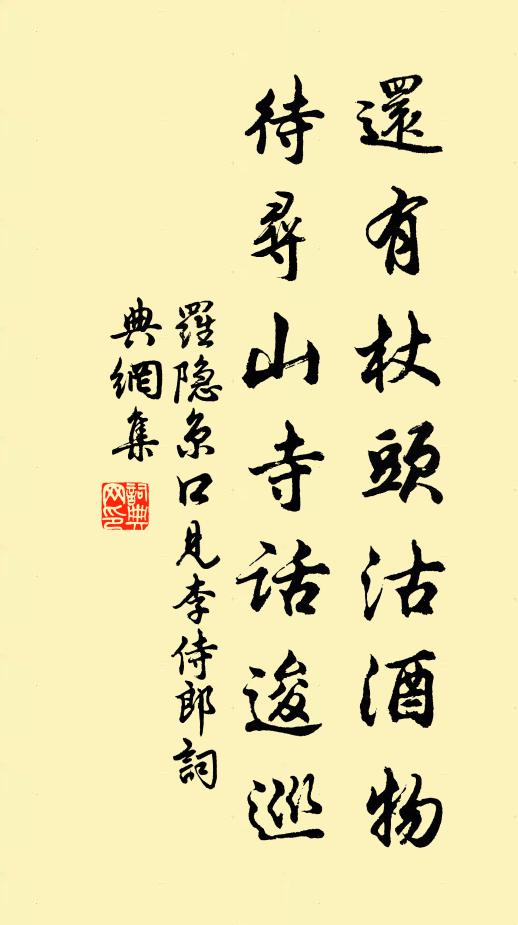 還有杖頭沽酒物
待尋山寺話逡巡
羅隐京口見李侍郎詞
典網集
詞典
网印